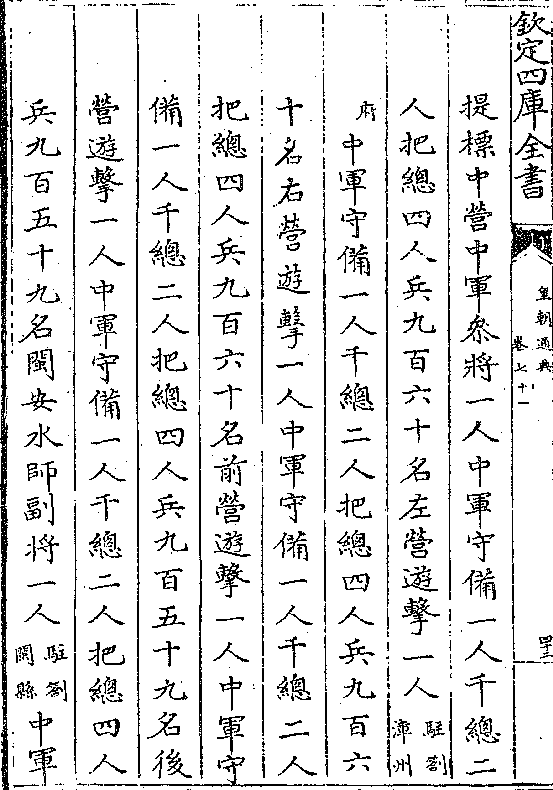 欽定四庫全書
皇朝通典
卷七十一
四十三
提標中營中軍叅將一人中軍守備一人千總二
人把總四人兵九百六十名左營遊擊一人駐劄漳州
府中軍守備一人千總二人把總四人兵九百六
十名右營遊擊一人中軍守備一人千總二人
把總四人兵九百六十名前營遊擊一人中軍守
備一人千總二人把總四人兵九百五十九名後
營遊擊一人中軍守備一人千總二人把總四人
兵九百五十九名閩安水師副將一人駐劄閩縣中軍